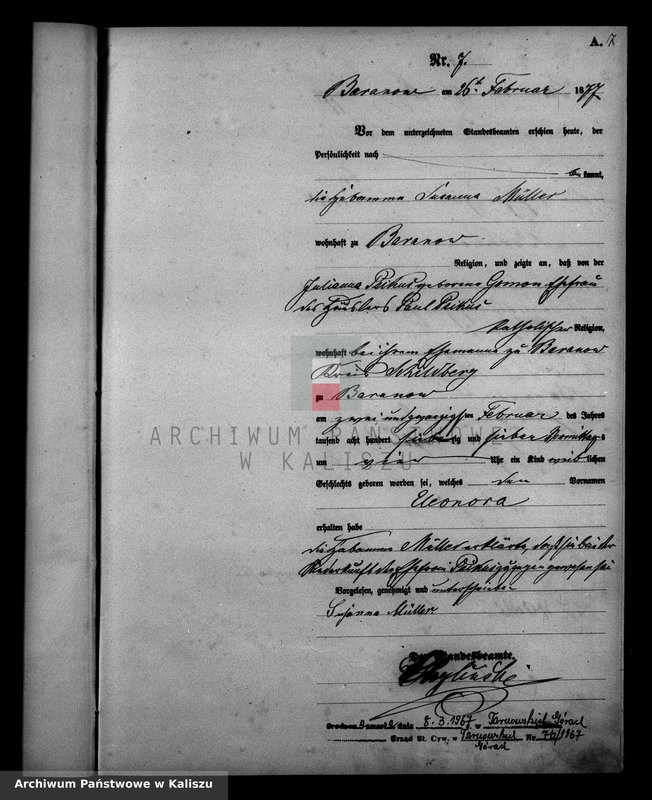 A. 7
Nr. 7.
Baranow am 26t Februar 1877
Vor dem unterzeichneten Standesbeamten erschien heute, der
Persönlichkeit nach
bekannt,
die Hebamme Susanna Müller
wohnhaft zu Baranow
Religion, und zeigte an, daß von der
Julianna geborene Ehefrau
des Häuslers Paul
katholischer Religion,
wohnhaft bei ihrem Ehemanne zu Baranow
Kreis Schildberg
zu Baranow
am zwei und zwanzigsten Februar des Jahres
tausend acht hundert siebenzig und sieben Vormittags
um vier Uhr ein Kind weiblichen
Geschlechts geboren worden sei, welches den Vornamen
Eleonora
erhalten habe
die Hebamme Müller erklärte, daß sie bei der
Niederkunft der Ehefrau zugegen gewesen sei
Vorgelesen, genehmigt und unterschrieben
Susanna Müller
Der Standesbeamte.
dnia 8.3.1967 w Tarnowskich Górach
Urząd St. Cyw. w Tarnowskich Nr. 76/1967
Górach
ARCHIWUM PAŃSTWOWE
W KALISZU
Archiwum Państwowe w Kaliszu